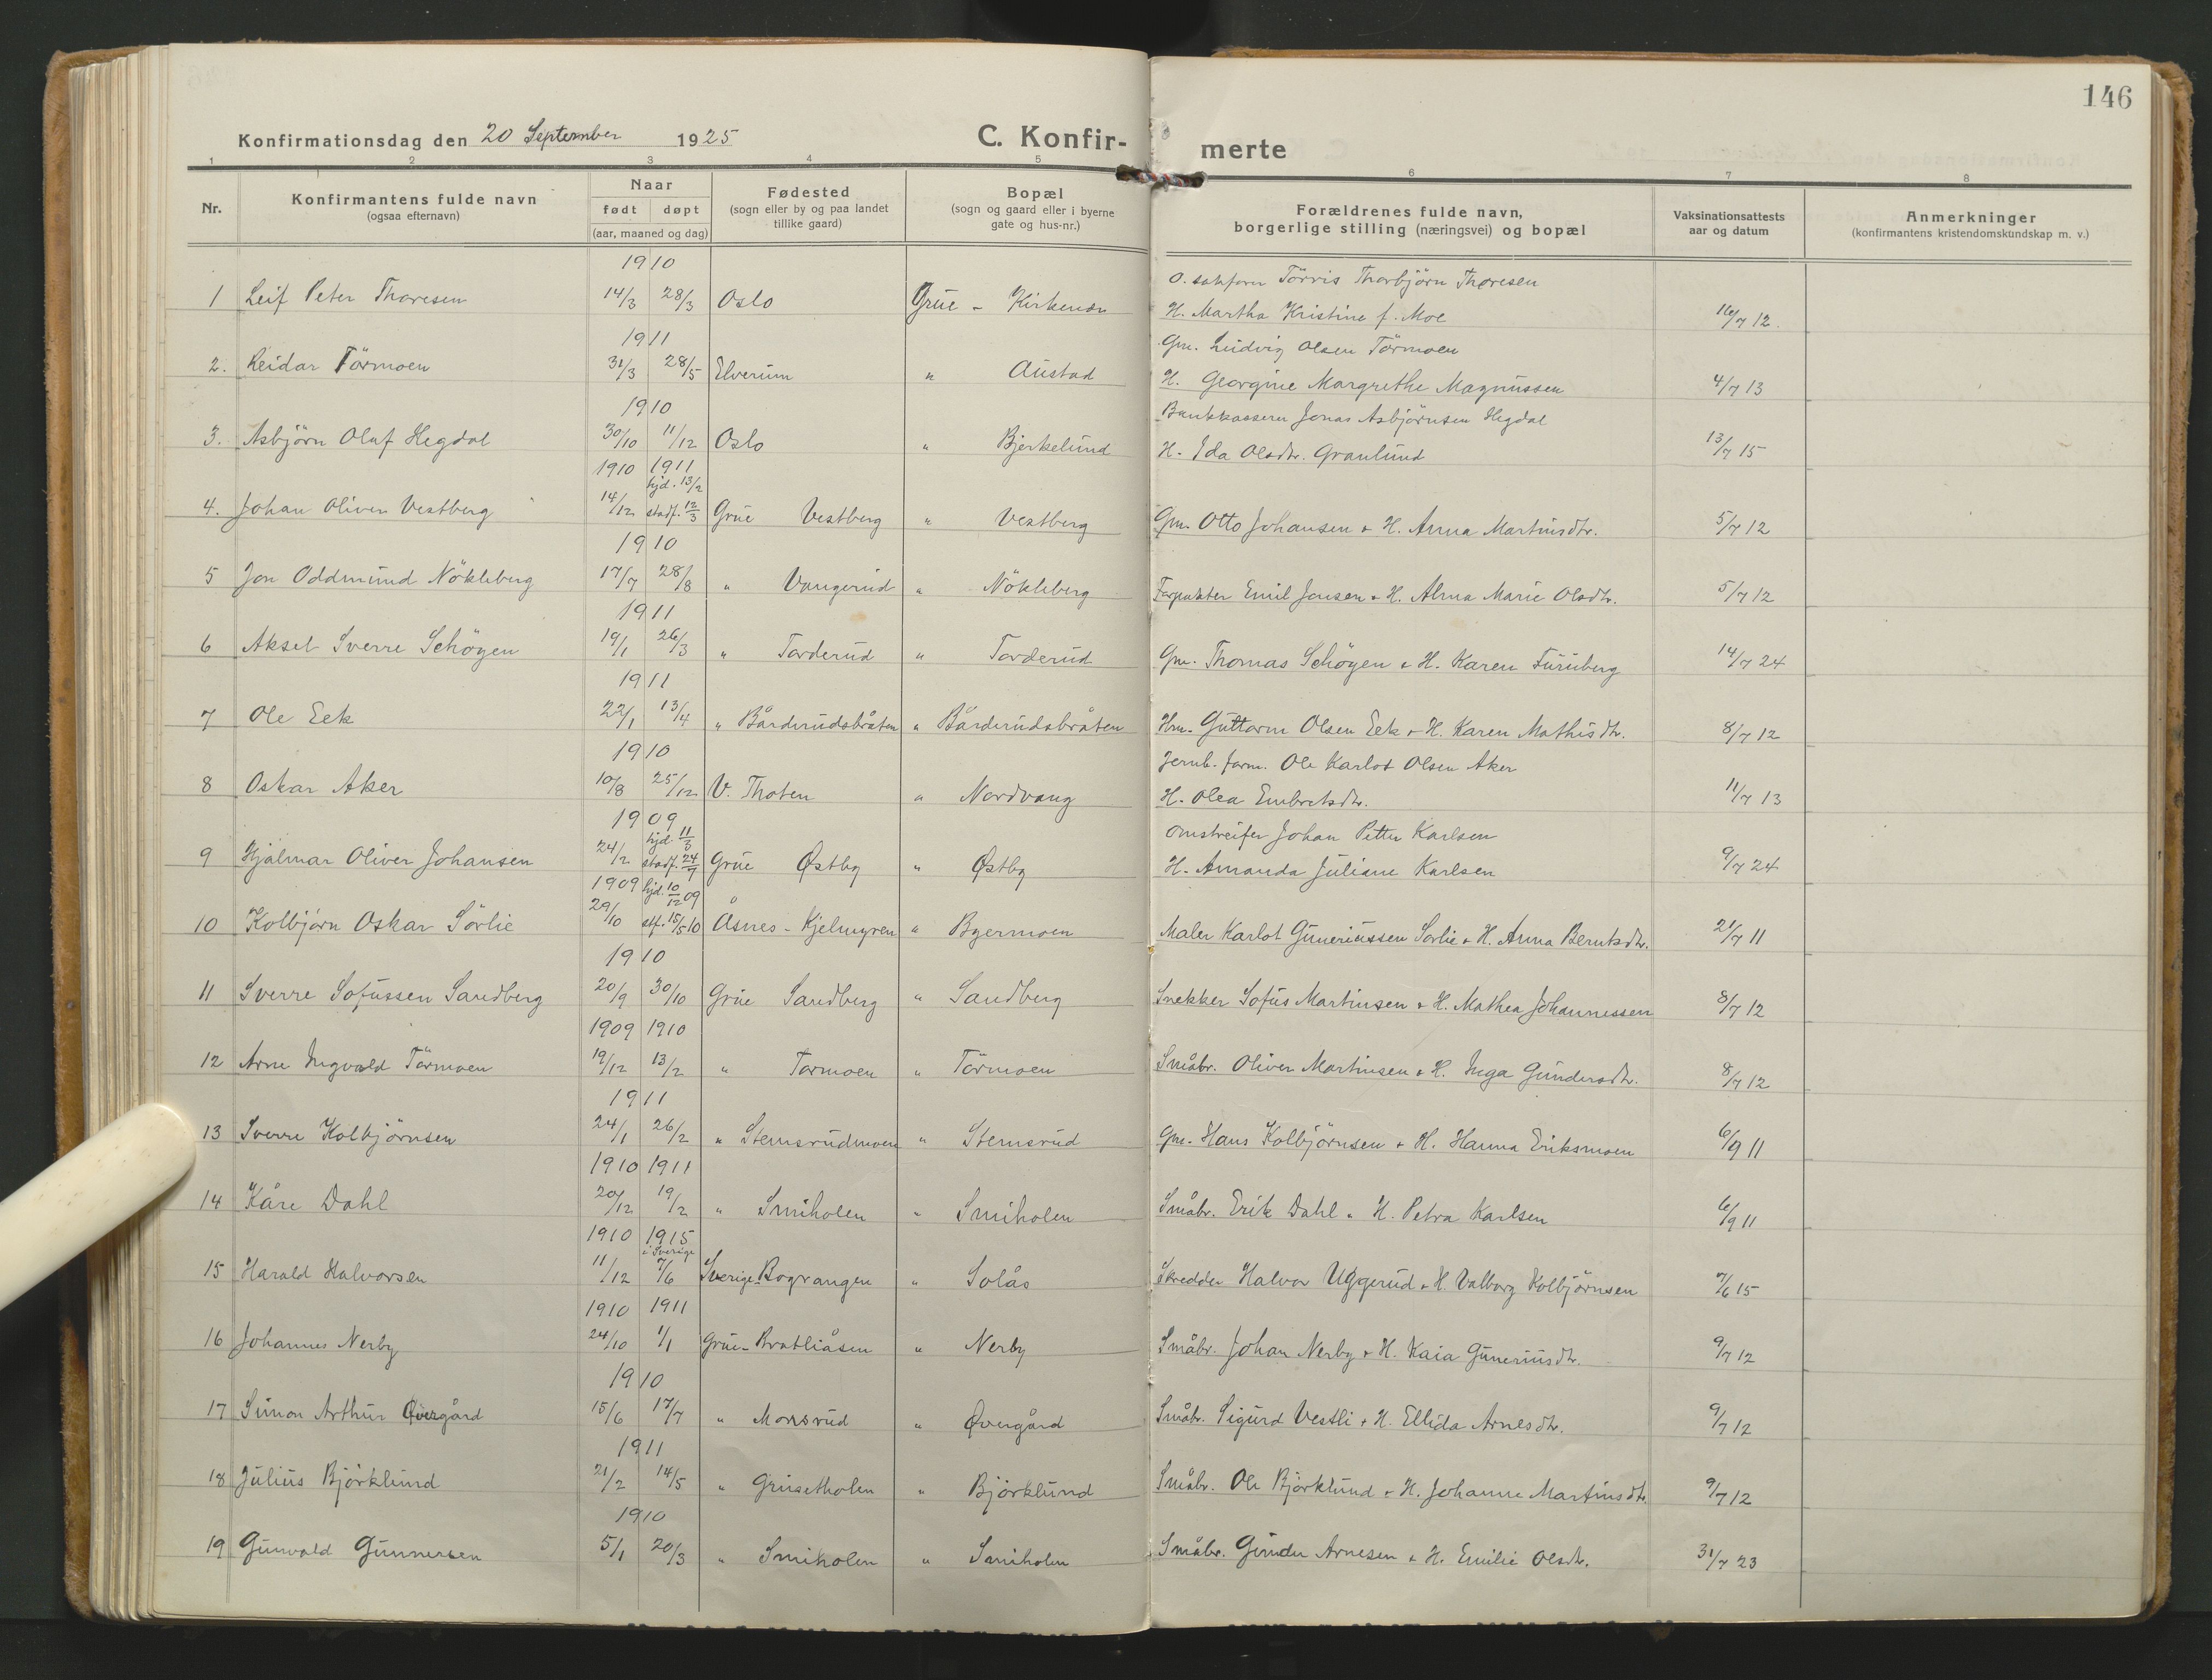 146
Konfirmationsdag den 20 September 1925 C. Konfir- merte
1 2 3 4 5 6 7 8
Nr. Konfirmantens fulde navn (ogsaa efternavn) Naar født døpt (aar, maaned og dag) Fødested (sogn eller by og paa landet tillike gaard) Bopæl (sogn og gaard eller i byerne gate og hus-nr.) Forældrenes fulde navn, borgerlige stilling (næringsvei) og bopæl Vaksinationsattests aar og datum Anmerkninger (konfirmantens kristendomskundskap m. v.)
1910 O. sakfører Törris Thorbjörn Thoresen
1 Leif Peter Thoresen 14/3 28/3 Oslo Grue - Kirkenær H. Martha Kristine f. Moe 16/7 12.
1911 Gm. Ludvig Olsen Törmoen
2. Reidar Törmoen 31/3 28/5 Elverum " Austad H. Georgine Margrethe Magnussen 4/7 13
1910 Bankkasserer Jonas Asbjörnsen Hegdal
3. Asbjörn Olaf Hegdal 30/10 11/12 Oslo " Bjerkelund H. Ida Olsdtr. Granlund 13/7 15
1910 1911 hjd. 13/2
4. Johan Oliver Vestberg 14/12 stadf. 12/3 Grue Vestberg " Vestberg Gm. Otto Johansen & H. Anna Martinsdtr. 5/7 12
1910
5 Jon Oddmund Nökleberg 17/7 28/8 " Vangerud " Nökleberg Forpakter Emil Jensen & H. Alma Marie Olsdtr. 5/7 12
1911
6 Aksel Sverre Schöyen 19/1 26/3 " Torderud " Torderud Gm. Thomas Schöyen & H. Karen Furuberg 14/7 24
1911
7 Ole Eek 22/1 13/4 " Bårderudsbråten " Bårderudsbråten Hm. Guttorm Olsen Eek & H. Karen Mathisdtr. 8/7 12
1910 Jernb. form. Ole Karlot Olsen Aker
8 Oskar Aker 10/8 25/12 V. Thoten " Nordvang H. Olea Embretsdtr. 11/7 13
1909 hjd. 11/3 Omstreifer Johan Petter Karlsen
9 Hjalmar Oliver Johansen 24/2 stadf. 24/7 Grue Østby " Østby H. Amanda Juliane Karlsen 9/7 24
1909 hjd. 10/12 09
10 Kolbjörn Oskar Sörlie 29/10 stf. 15/5 10 Åsnes - Kjelmyren " Byermoen Maler Karlot Guneriussen Sorlie & H. Anna Berntsdtr. 21/7 11
1910
11 Sverre Sofussen Sandberg 20/9 30/10 Grue Sandberg " Sandberg Snekker Sofus Martinsen & H. Mathea Johannessen 8/7 12
1909 1910
12 Arne Ingvald Törmoen 19/12 13/2 " Tormoen " Törmoen Småbr. Oliver Martinsen & H. Inga Gundersdtr. 8/7 12
1911
13 Sverre Kolbjörnsen 24/1 26/2 " Stemsrudmoen " Stemsrud Gm. Hans Kolbjörnsen & H. Hanna Eriksmoen 6/9 11
1910 1911
14 Kåre Dahl 20/12 19/2 " Smiholen " Smiholen Småbr. Erik Dahl & H. Petra Karlsen 6/9 11
1910 1915 i Sverige
15 Harald Halvorsen 11/12 7/6 Sverige-Bograngen " Solås Skredder Halvor Uggerud & H. Valborg Kolbjörnsen 7/6 15
1910 1911
16 Johannes Nerby 24/10 1/1 Grue - Bratliåsen " Nerby Småbr. Johan Nerby & H. Kaia Guneriusdtr. 9/7 12
1910
17 Simon Arthur Øvergård 15/6 17/7 " Monsrud " Øvergård Småbr. Sigurd Vestli & H. Ellida Arnesdtr. 9/7 12
1911
18 Julius Björklund 21/2 14/5 " Grusetholen " Björklund Småbr. Ole Björklund & H. Johanne Martinsdtr. 9/7 12
1910
19 Gunvald Gunnersen 5/1 20/3 " Smiholen " Smiholen Småbr. Gunder Arnesen & H. Emilie Olsdtr. 31/7 23